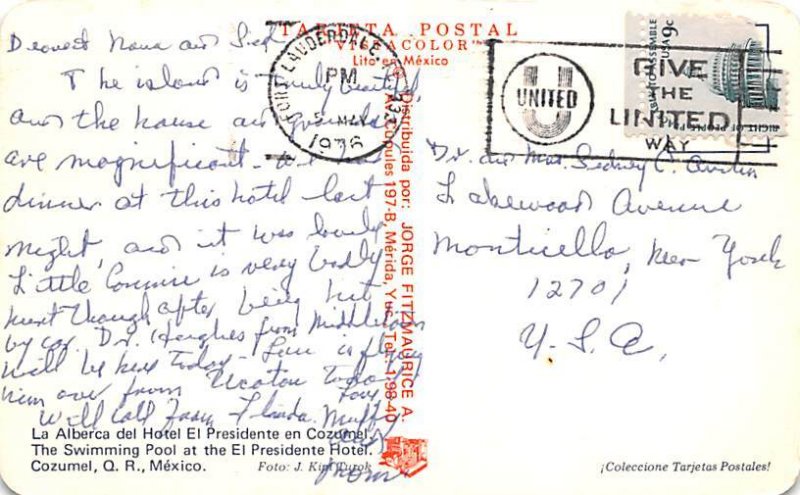 TARJETA POSTAL
"VISTACOLOR"
Lito en México
Dearest Nana and Sid
The island is truly beautiful,
and the house and grounds
are magnificent. We had
dinner at this hotel last
night, and it was lovely
Little Connie is very badly
hurt though after being hit
by car. Dr. Hughes from Middletown
will be here today - Lou is flying
him over from Ucatan today
Love
Will call from Florida. Muffy
and
Mom
FORT LAUDERDALE, FL 333
PM
5 MAY
1976
U
UNITED
GIVE
THE
UNITED
WAY
USA 9c
RIGHT OF PEOPLE
TO ASSEMBLE
Distribuida por: JORGE FITZMAURICE A.
197-B, Mérida, Yuc. Tel. 1-98-40
Dr. and Mrs. Sidney C.
Lakewood Avenue
Monticello, New York
12701
U.S.A.
La Alberca del Hotel El Presidente en Cozumel.
The Swimming Pool at the El Presidente Hotel.
Cozumel, Q. R., México.
Foto: J. Kirk Turok
¡Coleccione Tarjetas Postales!